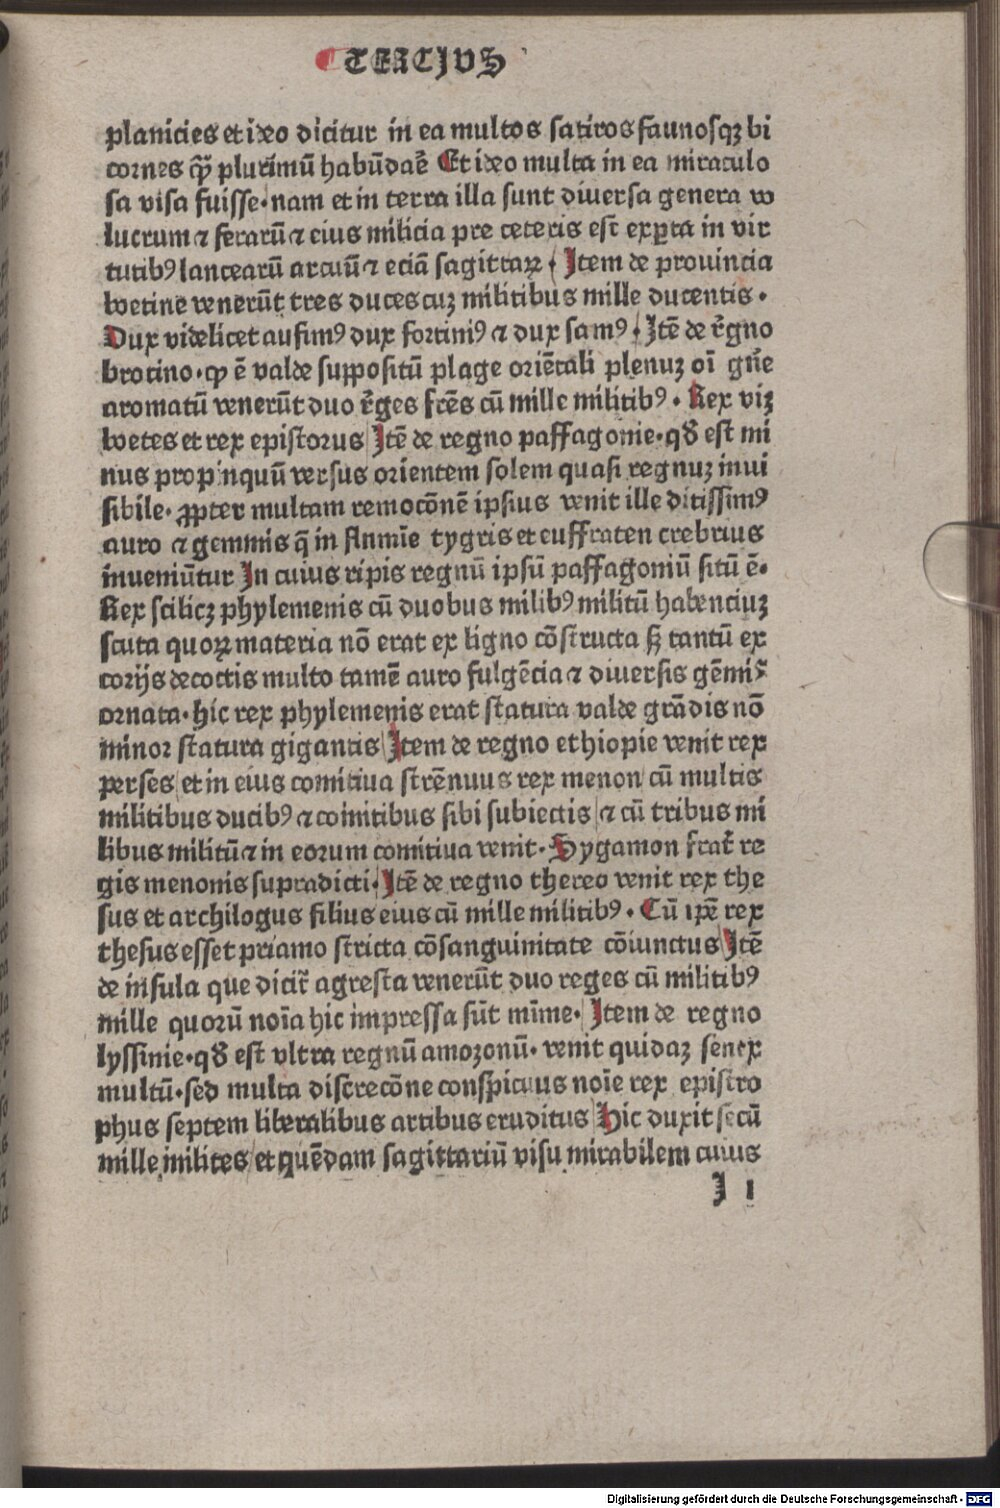 TERCIVS
planicies et ideo dicitur in ea multos satiros faunosqꝫ bi
cornes ꝙ̃ plurimũ habũdaẽ Et ideo multa in ea miraculo
sa visa fuisse·nam et in terra illa sunt diuersa genera vo
lucrum ⁊ ferarũ ⁊ eius milicia pre ceteris est exꝑta in vir
tutibꝰ lancearũ arcuũ ⁊ eciã sagittaꝝ· Item de prouincia
boetine venerũt tres duces cuꝫ militibus mille ducentis·
Dux videlicet ausimꝰ dux fortiniꝰ ⁊ dux samꝰ· Itẽ de r̃gno
brotino·ꝙ ẽ valde suppositũ plage oriẽtali plenuꝫ oĩ gñe
aromatũ venerũt duo r̃ges fr̃es cũ mille militibꝰ· Rex viꝫ
boetes et rex epistorus Itẽ de regno paffagonie·qð est mi
nus propinquũ versus orientem solem quasi regnuꝫ inui
sibile·ꝓpter multam remocõnẽ ipsius venit ille ditissimꝰ
auro ⁊ gemmis q̃ in flnmĩe tygris et euffraten crebrius
inueniũtur In cuius ripis regnũ ipsũ paffagoniũ sitũ ẽ·
Rex scilicꝫ phylemenis cũ duobus milibꝰ militũ habenciuꝫ
scuta quoꝝ materia nõ erat ex ligno cõstructa sꝫ tantũ ex
corijs decoctis multo tamẽ auro fulgẽcia ⁊ diuersis gẽmis
ornata·hic rex phylemenis erat statura valde grãdis nõ
minor statura gigantis Item de regno ethiopie venit rex
perses et in eius comitiua strẽnuus rex menon cũ multis
militibus ducibꝰ ⁊ comitibus sibi subiectis ⁊ cũ tribus mi
libus militũ ⁊ in eorum comitiua venit· Sygamon frat̃ re
gis menonis supradicti· Itẽ de regno thereo venit rex the
sus et archilogus filius eius cũ mille militibꝰ· Cũ ip̃e rex
thesus esset priamo stricta cõsanguinitate cõiunctus Itẽ
de insula que dicit̃ agresta venerũt duo reges cũ militibꝰ
mille quorũ noĩa hic impressa sũt mĩme· Item de regno
lyssinie·qð est vltra regnũ amozonũ·venit quidaꝫ senex
multũ·sed multa discrecõne conspicuus noĩe rex epistro
phus septem liberalibus artibus eruditus Hic duxit secũ
mille milites et quẽdam sagittariũ visu mirabilem cuius
I 1
Digitalisierung gefördert durch die Deutsche Forschungsgemeinschaft - DFG